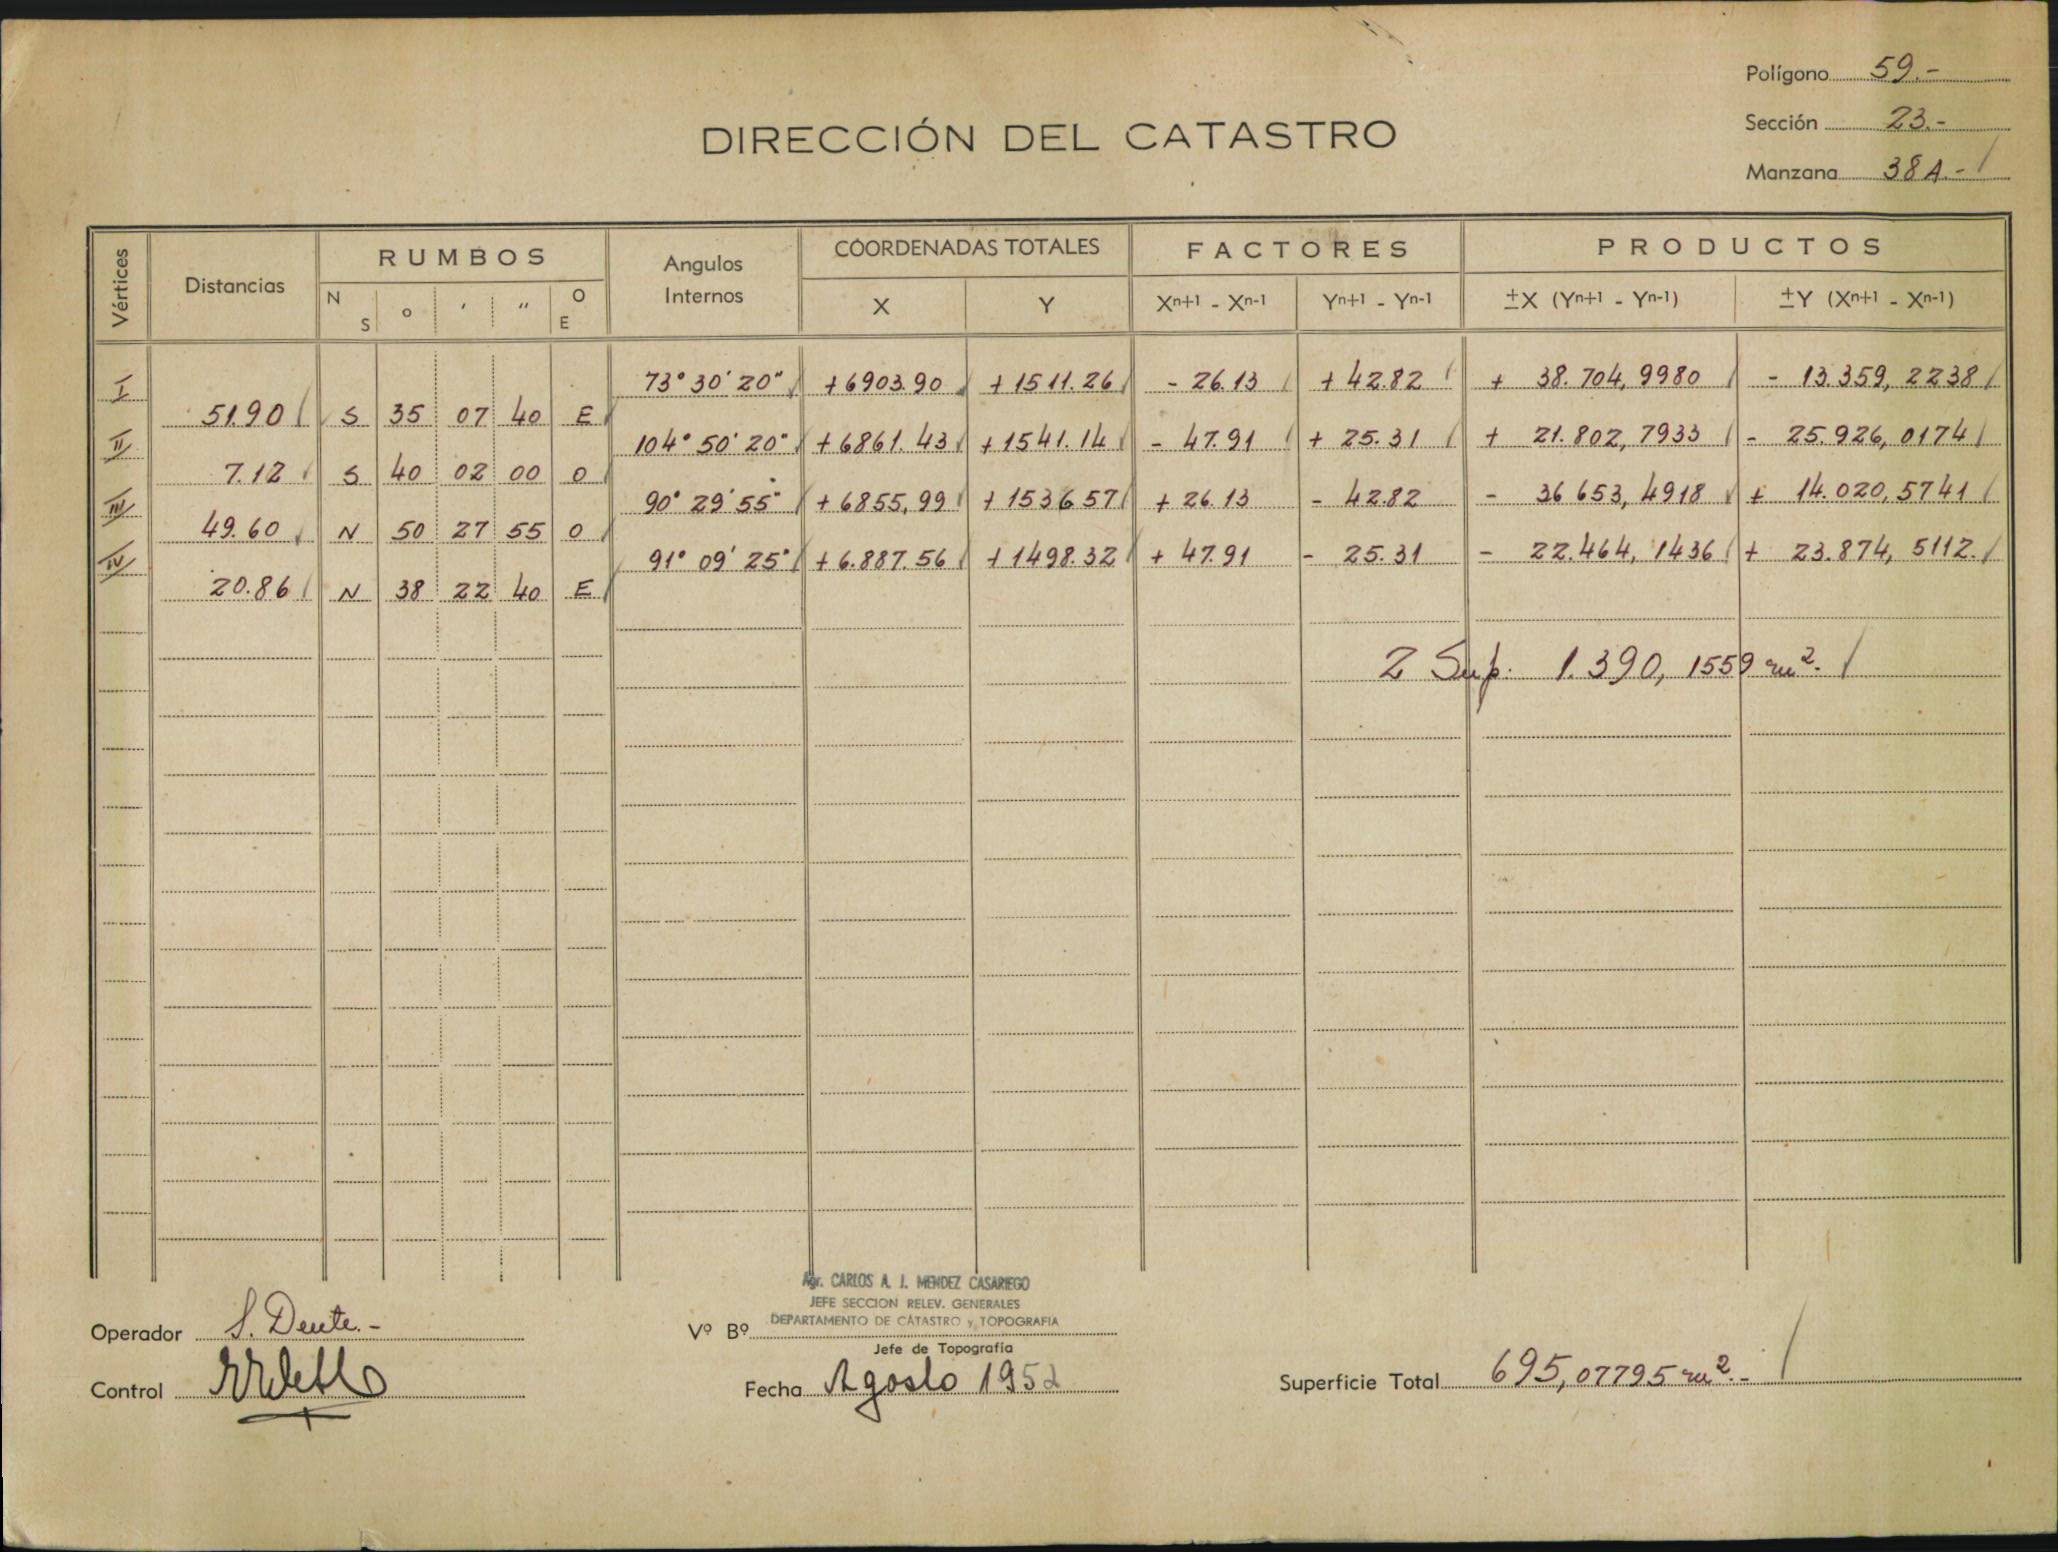 Polígono 59.-
Sección 23.-
Manzana 38A.-
DIRECCIÓN DEL CATASTRO
Vértices Distancias RUMBOS Angulos Internos COORDENADAS TOTALES FACTORES PRODUCTOS
N S o ' " O E X Y Xn+1 - Xn-1 Yn+1 - Yn-1 ±X (Yn+1 - Yn-1) ±Y (Xn+1 - Xn-1)
I 73° 30' 20" +6903.90 +1511.26 - 26.13 +42.82 + 38.704,9980 - 13.359,2238
51.90 S 35 07 40 E
II 104° 50' 20" +6861.43 +1541.14 - 47.91 + 25.31 + 21.802,7933 - 25.926,0174
7.12 S 40 02 00 O
III 90° 29' 55" +6855,99 +1536 57 + 26.13 - 42.82 - 36 653,4918 + 14.020,5741
49.60 N 50 27 55 O
IV 91° 09' 25" +6.887.56 +1498.32 + 47.91 - 25.31 - 22.464,1436 + 23.874,5112.
20.86 N 38 22 40 E
2 Sup. 1.390,1559 m².
Agr. CARLOS A. J. MENDEZ CASARIEGO
JEFE SECCION RELEV. GENERALES
DEPARTAMENTO DE CATASTRO y TOPOGRAFIA
Operador S. Deute.-
Vº Bº
Jefe de Topografía
Control
Fecha Agosto 1952
Superficie Total 695,07795 m².-